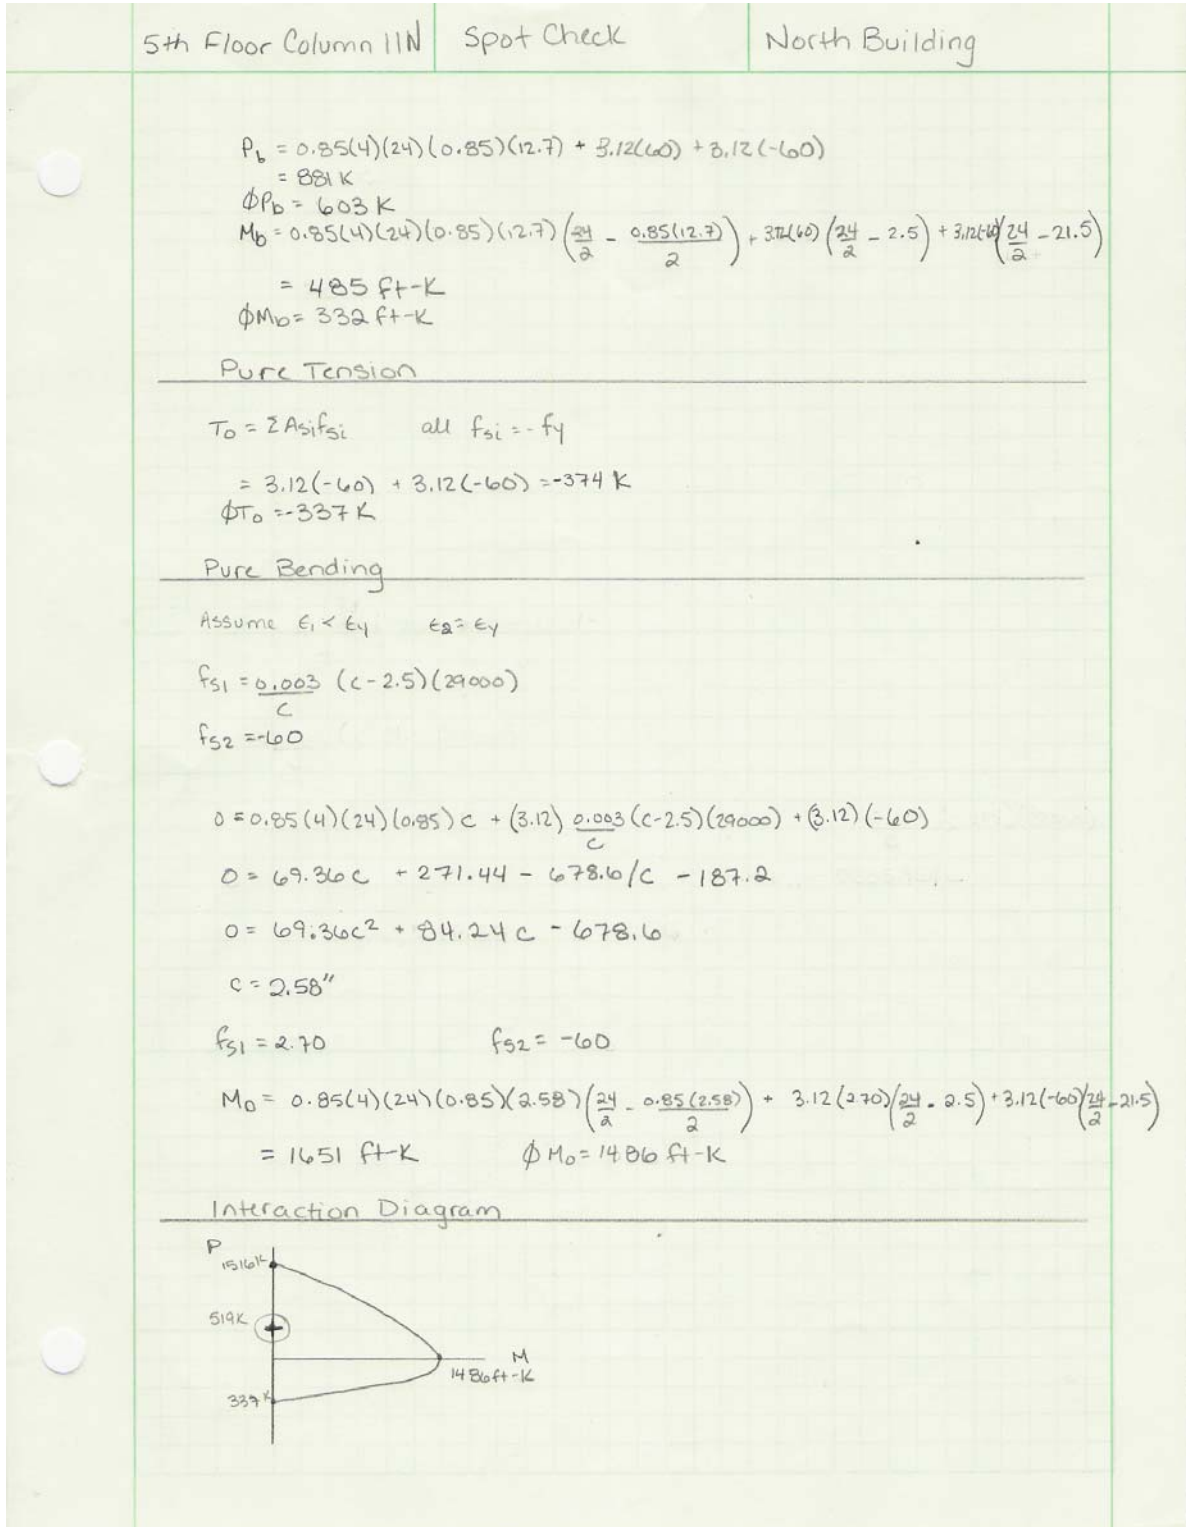 5th Floor Column 11N Spot Check North Building
P_b = 0.85(4)(24)(0.85)(12.7) + 3.12(60) + 3.12(-60)
= 881 K
ϕP_b = 603 K
M_b = 0.85(4)(24)(0.85)(12.7)(24/2 - 0.85(12.7)/2) + 3.12(60)(24/2 - 2.5) + 3.12(-60)(24/2 - 21.5)
= 485 ft-K
ϕM_b = 332 ft-K
Pure Tension
T_o = Σ A_si f_si all f_si = -f_y
= 3.12(-60) + 3.12(-60) = -374 K
ϕT_o = -337 K
Pure Bending
Assume ε_1 < ε_y ε_2 = ε_y
f_s1 = 0.003/c (c - 2.5)(29000)
f_s2 = -60
0 = 0.85(4)(24)(0.85)c + (3.12) 0.003/c (c-2.5)(29000) + (3.12)(-60)
0 = 69.36c + 271.44 - 678.6/c - 187.2
0 = 69.36c² + 84.24c - 678.6
c = 2.58"
f_s1 = 2.70 f_s2 = -60
M_o = 0.85(4)(24)(0.85)(2.58)(24/2 - 0.85(2.58)/2) + 3.12(2.70)(24/2 - 2.5) + 3.12(-60)(24/2 - 21.5)
= 1651 ft-K ϕM_o = 1486 ft-K
Interaction Diagram
P
1516K
519K
M
1486ft-K
337K